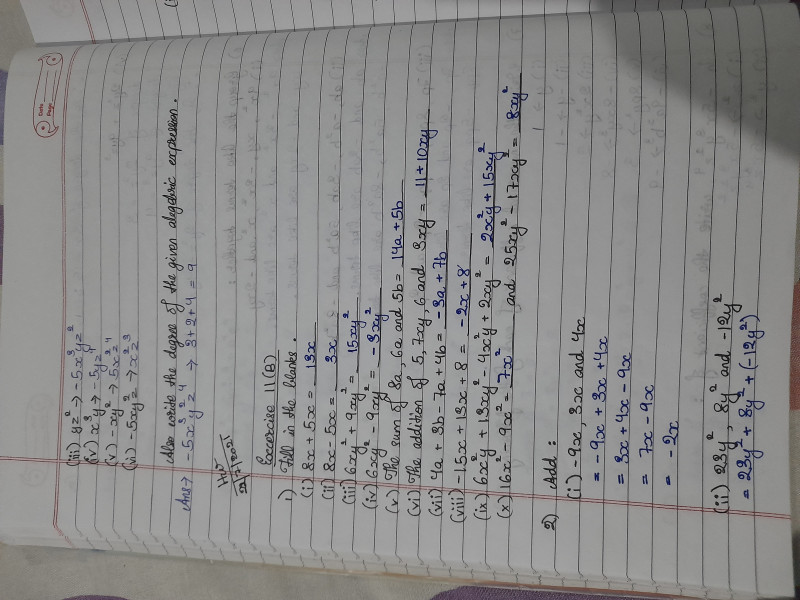 Date
Page
(iii) yz² → -5x³yz²
(iv) x³y → -5yz⁴
(v) -xy² → 5x²z⁴
(vi) -5xyz → xz³
Also write the degree of the given algebric expression.
Ans → -5x³y²z⁴ → 3+2+4 = 9
H.W
Excercise 11(B)
1) Fill in the blanks.
(i) 8x + 5x = 13x
(ii) 8x - 5x = 3x
(iii) 6xy² + 9xy² = 15xy²
(iv) 6xy² - 9xy² = -3xy²
(v) The sum of 8a, 6a and 5b = 14a + 5b
(vi) The addition of 5, 7xy, 6 and 3xy = 11 + 10xy
(vii) 4a + 3b - 7a + 4b = -3a + 7b
(viii) -15x + 13x + 8 = -2x + 8
(ix) 6x²y + 13xy² - 4x²y + 2xy² = 2x²y + 15xy²
(x) 16x² - 9x² = 7x² and 25xy² - 17xy² = 8xy²
2) Add :
(i) -9x, 3x and 4x
= -9x + 3x + 4x
= 3x + 4x - 9x
= 7x - 9x
= -2x
(ii) 23y², 8y² and -12y²
= 23y² + 8y² + (-12y²)